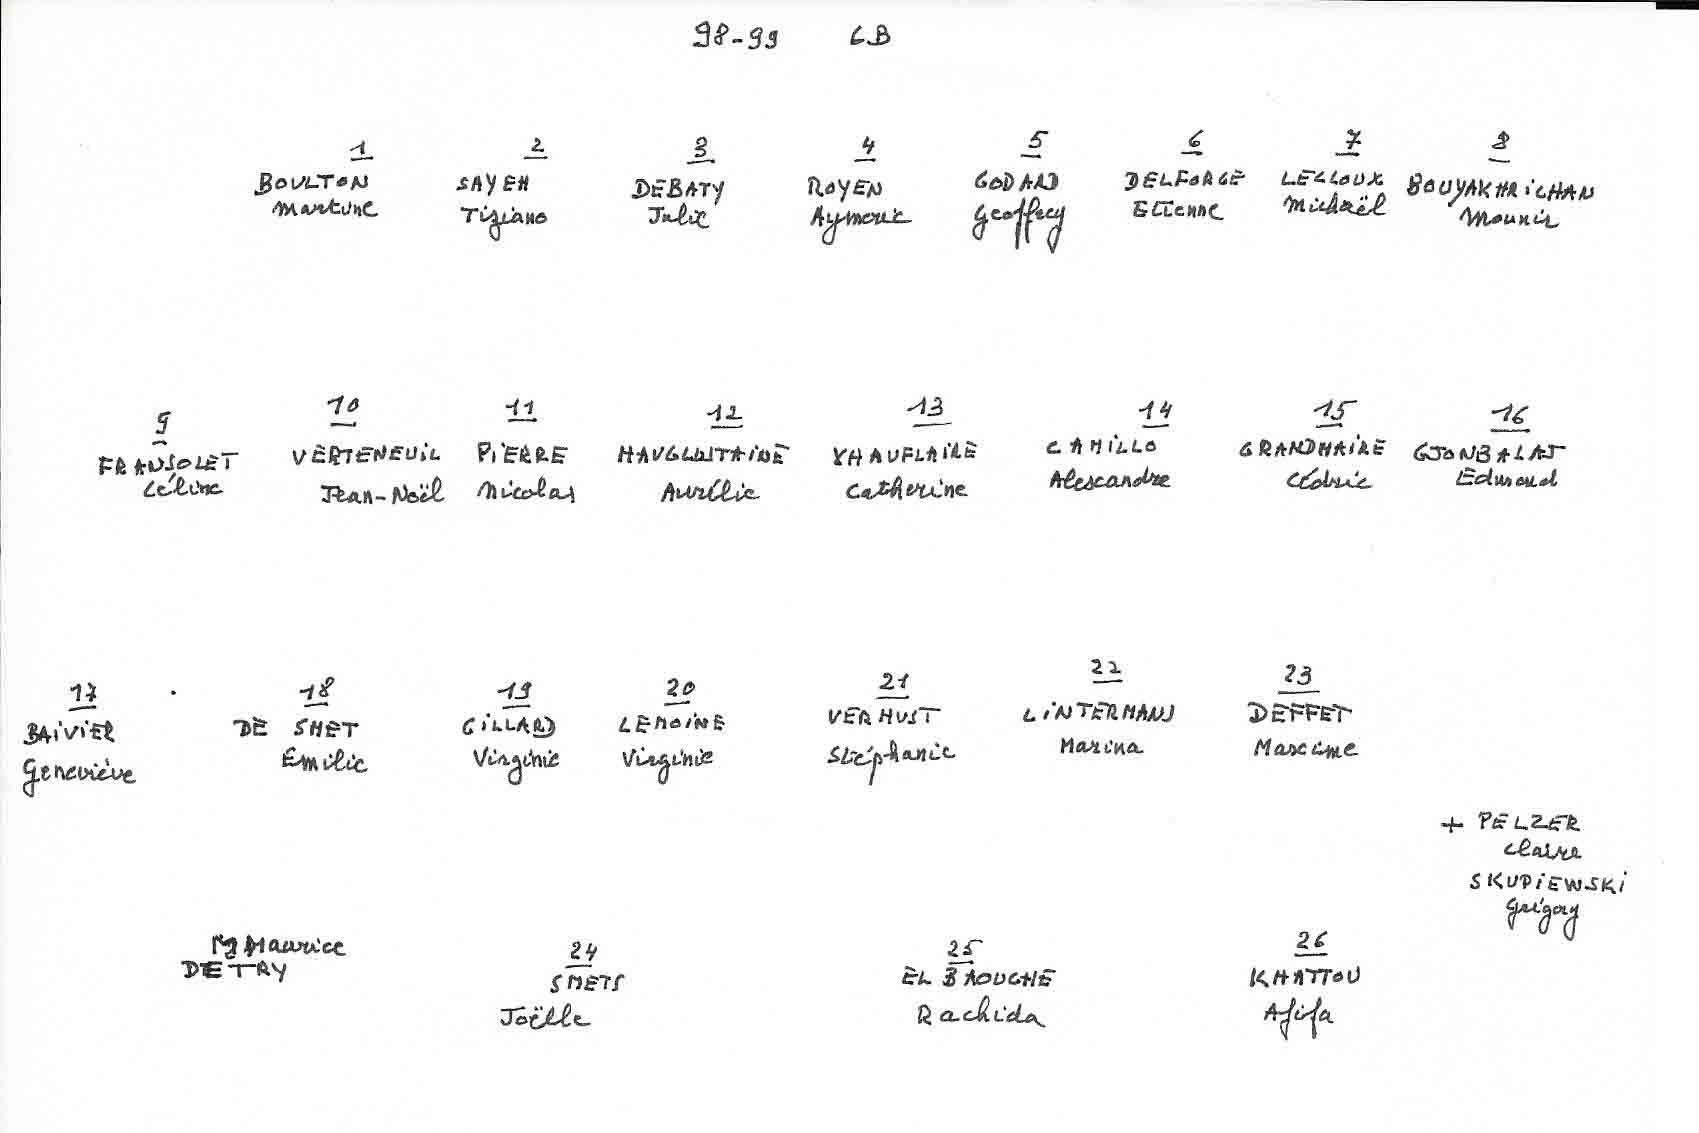 98-99 6B
1 2 3 4 5 6 7 8
BOULTON SAYEH DEBATY ROYEN GODARD DELFORGE LECLOUX BOUYAKHRICHAN
Martine Tiziano Julie Aymeric Geoffrey Etienne Michaël Mounir
9 10 11 12 13 14 15 16
FRANSOLET VERTENEUIL PIERRE XHAUFLAIRE CAMILLO GRANDMAIRE GJONBALAJ
Céline Jean-Noël Nicolas Aurélie Catherine Alexandre Cédric Edmond
17 18 19 20 21 22 23
BAIVIER DE SMET GILLARD LEMOINE VERHUST LINTERMANS DEFFET
Geneviève Emilie Virginie Virginie Stéphanie Marina Maxime
+ PELZER
Claire
SKUPIEWSKI
Grégory
Maurice 24 25 26
DETRY SMETS EL BAOUCHE KHATTOU
Joëlle Rachida Afifa